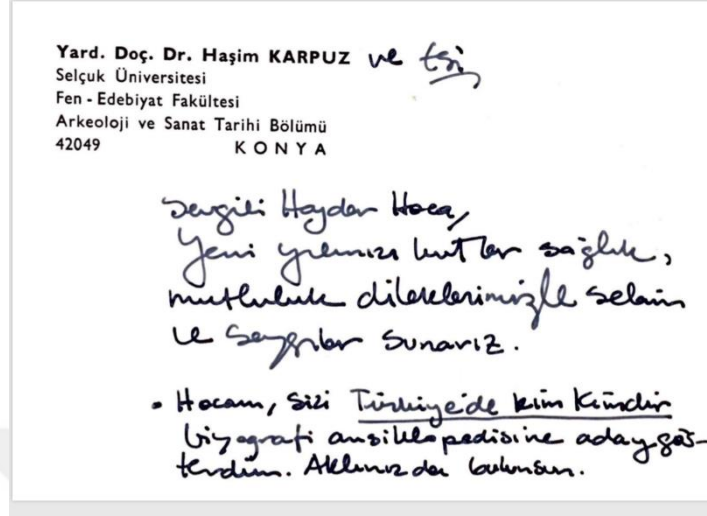 Yard. Doç. Dr. Haşim KARPUZ ve Eşi
Selçuk Üniversitesi
Fen - Edebiyat Fakültesi
Arkeoloji ve Sanat Tarihi Bölümü
42049 KONYA
Sevgili Haydar Hoca,
Yeni yılınızı kutlar sağlık,
mutluluk dileklerimizle selam
ve saygılar sunarız.
• Hocam, sizi Türkiye'de kim Kimdir
biyografi ansiklopedisine aday gös-
terdim. Aklınızda bulunsun.